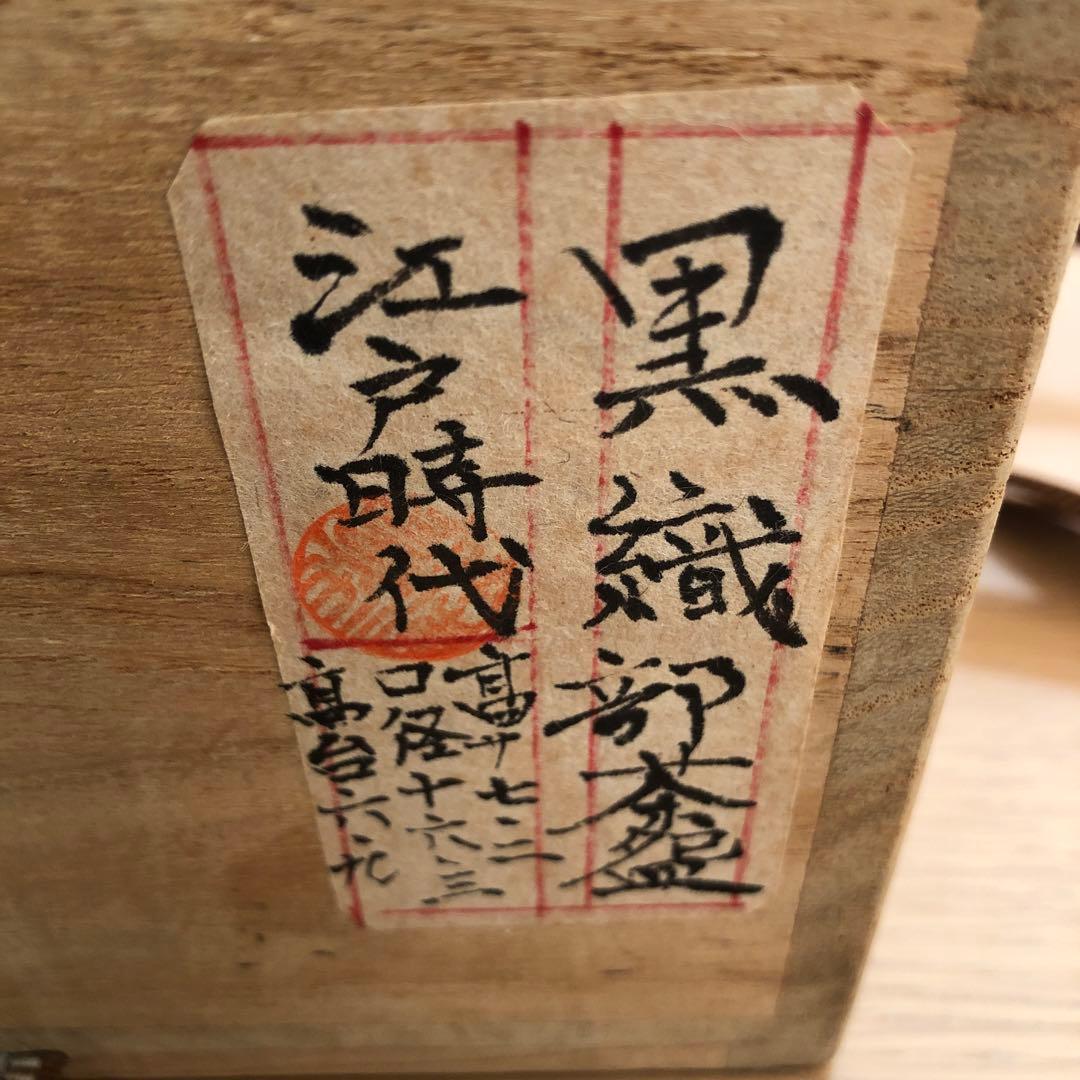 黒織部茶盌
江戸時代
高サ七・二
口径十六・三
高台六・九